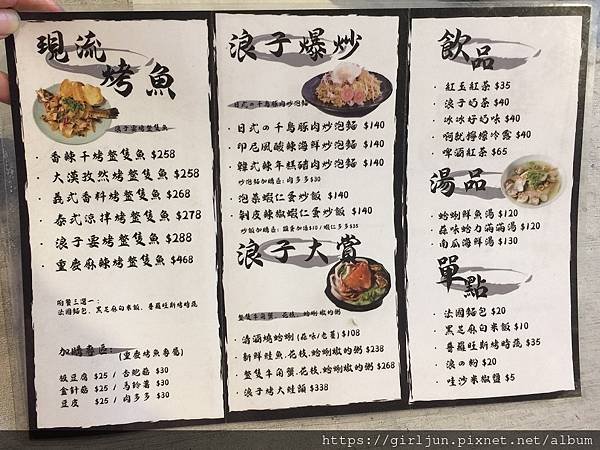 現流
烤魚
浪子雲烤整隻魚
香辣干烤整隻魚 $258
大漠孜然烤整隻魚 $258
義式香料烤整隻魚 $268
泰式涼拌烤整隻魚 $278
浪子雲烤整隻魚 $288
重慶麻辣烤整隻魚 $468
附餐三選一：
法國麵包、黑芝麻白米飯、普羅旺斯烤時蔬
加購專區 (重慶烤魚專屬)
板豆腐 $25 / 杏鮑菇 $30
金針菇 $25 / 馬鈴薯 $30
豆皮 $25 / 肉多多 $30
浪子爆炒
日式の千島豚肉炒泡麵
日式の千島豚肉炒泡麵 $140
印尼風酸辣海鮮炒泡麵 $140
韓式辣年糕豬肉炒泡麵 $140
炒泡麵加購區：肉多多$30
泡菜蝦仁蛋炒飯 $140
剝皮辣椒蝦仁蛋炒飯 $140
炒飯加購區：雞蛋加價$10/蝦仁多多$35
浪子大賞
整隻牛角蟹、花枝、蛤蜊燉的粥
清酒燒蛤蜊 (蒜味/老薑) $108
新鮮鮭魚、花枝、蛤蜊燉的粥 $238
整隻牛角蟹、花枝、蛤蜊燉的粥 $268
浪子烤大鮭頭 $338
飲品
紅玉紅茶 $35
浪子奶茶 $40
冰冰好奶味 $40
啊就檸檬冷露 $40
啤酒紅茶 $65
湯品
蛤蜊鮮魚湯 $120
蒜味蛤力滿滿湯 $120
南瓜海鮮湯 $130
單點
法國麵包 $20
黑芝麻白米飯 $10
普羅旺斯烤時蔬 $35
浪の粉 $20
哇沙米椒鹽 $5
https://girljun.pixnet.net/album